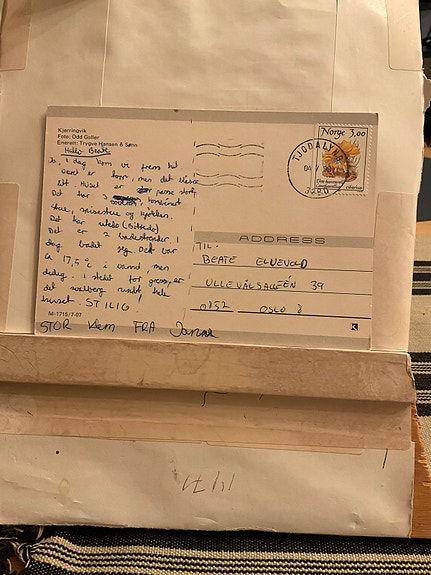 Kjerringvik
Foto: Odd Geller
Enerett: Trygve Hansen & Sønn
Hallo Beate
Jo, i dag kom vi frem hit
Været er bra, men det blåser
litt. Huset er passe stort,
Det har 3 kombinert
stue, spisestue og kjøkken.
Det har utedo (Biltedo)
Det er 2 badestrender. I
dag badet jeg. Det var
ca 17,5 °C i vannet, men
deilig. I stedet for gress er
det svaberg rundt hele
huset. STILIG!
M-1715/7-07
STOR klem FRA Janne
Norge 3,00
TJODALYNG
ADDRESS
TIL:
BEATE ELNEVOLD
ULLEVÅLSALLÉEN 39
0852 OSLO 8
K